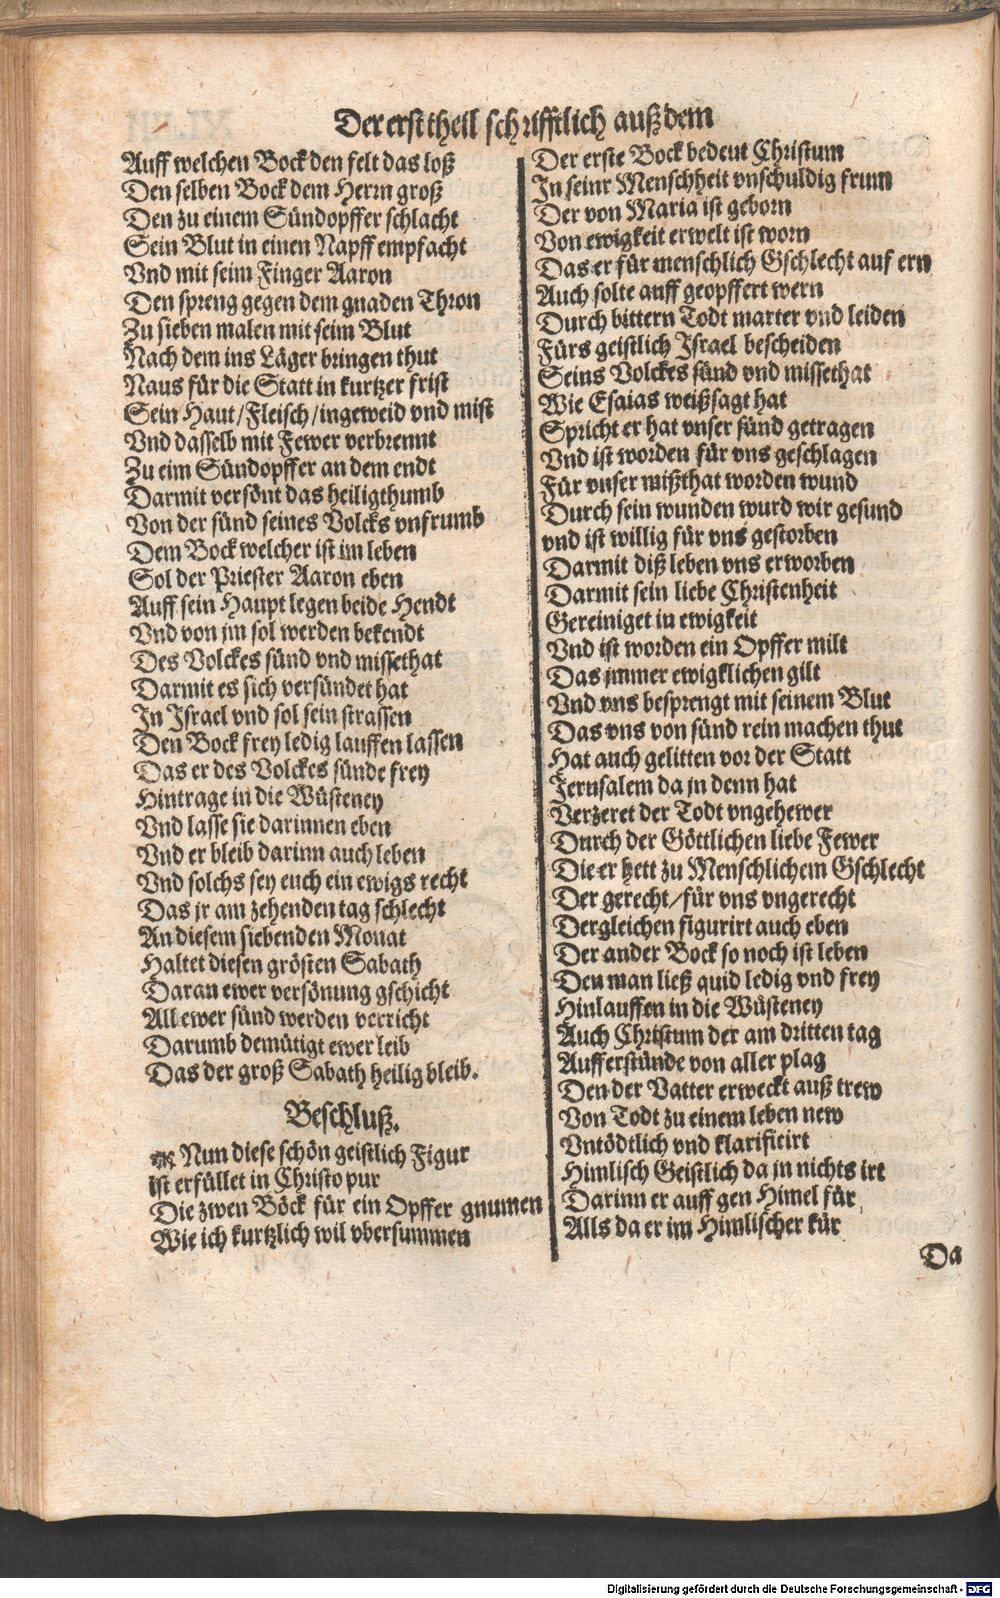 Der erst theil schrifftlich auß dem
Auff welchen Bock den felt das loß
Den selben Bock dem Herrn groß
Den zu einem Sündopffer schlacht
Sein Blut in einen Napff empfacht
Vnd mit seim Finger Aaron
Den spreng gegen dem gnaden Thron
Zu sieben malen mit seim Blut
Nach dem ins Läger bringen thut
Naus für die Statt in kurtzer frist
Sein Haut/Fleisch/ingeweid vnd mist
Vnd dasselb mit Fewer verbrennt
Zu eim Sündopffer an dem endt
Darmit versönt das heiligthumb
Von der sünd seines Volcks vnfrumb
Dem Bock welcher ist im leben
Sol der Priester Aaron eben
Auff sein Haupt legen beide Hendt
Vnd von jm sol werden bekendt
Des Volckes sünd vnd missethat
Darmit es sich versündet hat
In Israel vnd sol sein strassen
Den Bock frey ledig lauffen lassen
Das er des Volckes sünde frey
Hintrage in die Wüsteney
Vnd lasse sie darinnen eben
Vnd er bleib darinn auch leben
Vnd solchs sey euch ein ewigs recht
Das jr am zehenden tag schlecht
An diesem siebenden Monat
Haltet diesen grösten Sabath
Daran ewer versönung gschicht
All ewer sünd werden verricht
Darumb demütigt ewer leib
Das der groß Sabath heilig bleib.
Beschluß.
Nun diese schön geistlich Figur
ist erfüllet in Christo pur
Die zwen Böck für ein Opffer gnumen
Wie ich kurtzlich wil vbersummen
Der erste Bock bedeut Christum
In seinr Menschheit vnschuldig frum
Der von Maria ist geborn
Von ewigkeit erwelt ist worn
Das er für menschlich Gschlecht auf ern
Auch solte auff geopffert wern
Durch bittern Todt marter vnd leiden
Fürs geistlich Israel bescheiden
Seins Volckes sünd vnd missethat
Wie Esaias weißsagt hat
Spricht er hat vnser sünd getragen
Vnd ist worden für vns geschlagen
Für vnser mißthat worden wund
Durch sein wunden wurd wir gesund
vnd ist willig für vns gestorben
Darmit diß leben vns erworben
Darmit sein liebe Christenheit
Gereiniget in ewigkeit
Vnd ist worden ein Opffer milt
Das jmmer ewigklichen gilt
Vnd vns besprengt mit seinem Blut
Das vns von sünd rein machen thut
Hat auch gelitten vor der Statt
Jerusalem da jn denn hat
Verzeret der Todt vngehewer
Durch der Göttlichen liebe Fewer
Die er hett zu Menschlichem Gschlecht
Der gerecht/für vns vngerecht
Dergleichen figurirt auch eben
Der ander Bock so noch ist leben
Den man ließ quid ledig vnd frey
Hinlauffen in die Wüsteney
Auch Christum der am dritten tag
Aufferstünde von aller plag
Den der Vatter erweckt auß trew
Von Todt zu einem leben new
Vntödtlich vnd klarificirt
Himlisch Geistlich da jn nichts irt
Darinn er auff gen Himel für
Alls da er im Himlischer kür
Da
Digitalisierung gefördert durch die Deutsche Forschungsgemeinschaft - DFG